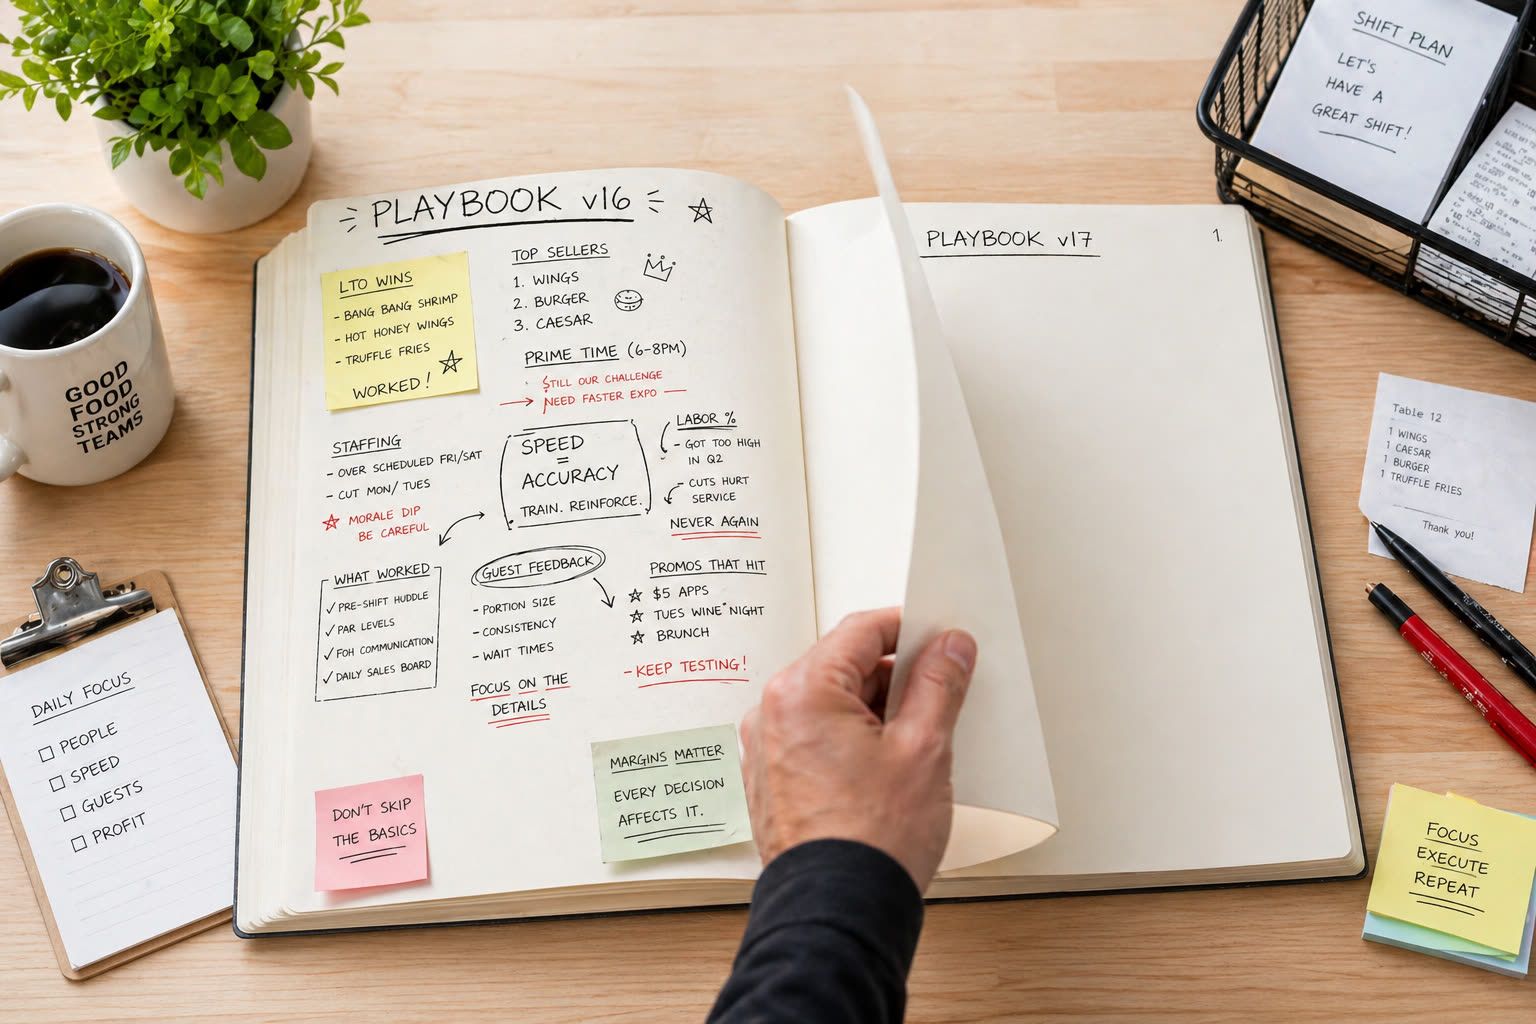 PLAYBOOK v16
LTO WINS
- BANG BANG SHRIMP
- HOT HONEY WINGS
- TRUFFLE FRIES
WORKED!
TOP SELLERS
1. WINGS
2. BURGER
3. CAESAR
PRIME TIME (6-8PM)
STILL OUR CHALLENGE
NEED FASTER EXPO
STAFFING
- OVER SCHEDULED FRI/SAT
- CUT MON/TUES
MORALE DIP
BE CAREFUL
SPEED
=
ACCURACY
TRAIN. REINFORCE.
LABOR %
- GOT TOO HIGH
IN Q2
- CUTS HURT
SERVICE
NEVER AGAIN
WHAT WORKED
✓ PRE-SHIFT HUDDLE
✓ PAR LEVELS
✓ FOH COMMUNICATION
✓ DAILY SALES BOARD
GUEST FEEDBACK
- PORTION SIZE
- CONSISTENCY
- WAIT TIMES
FOCUS ON THE
DETAILS
PROMOS THAT HIT
☆ $5 APPS
☆ TUES WINE NIGHT
☆ BRUNCH
- KEEP TESTING!
DON'T SKIP
THE BASICS
MARGINS MATTER
EVERY DECISION
AFFECTS IT.
PLAYBOOK v17
1.
GOOD
FOOD
STRONG
TEAMS
DAILY FOCUS
PEOPLE
SPEED
GUESTS
PROFIT
SHIFT PLAN
LET'S
HAVE A
GREAT SHIFT!
Table 12
1 WINGS
1 CAESAR
1 BURGER
1 TRUFFLE FRIES
Thank you!
FOCUS
EXECUTE
REPEAT